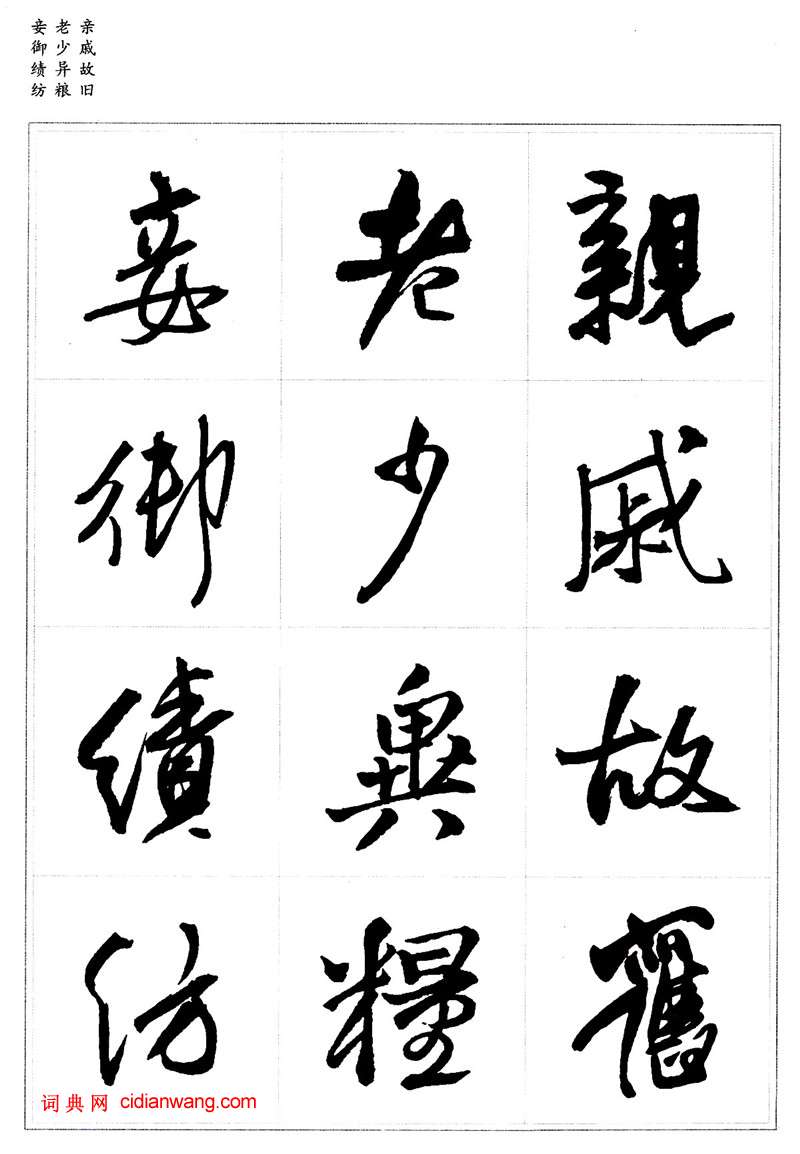 亲戚故旧
老少异粮
妾御绩纺
親戚故舊
老少異糧
妾御績紡
词典网 cidianwang.com